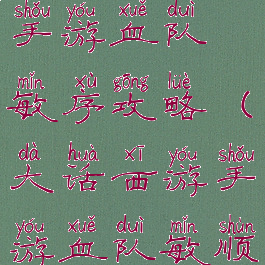 shǒu yóu xuě duì
手游血队
mǐn xù gōng lüè
敏序攻略（
dà huà xī yóu shǒu
大话西游手
yóu xuě duì mǐn shùn
游血队敏顺